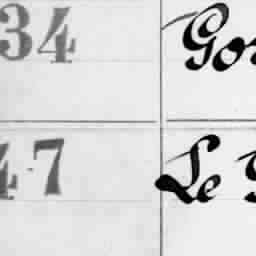 34 Gor
47 Le